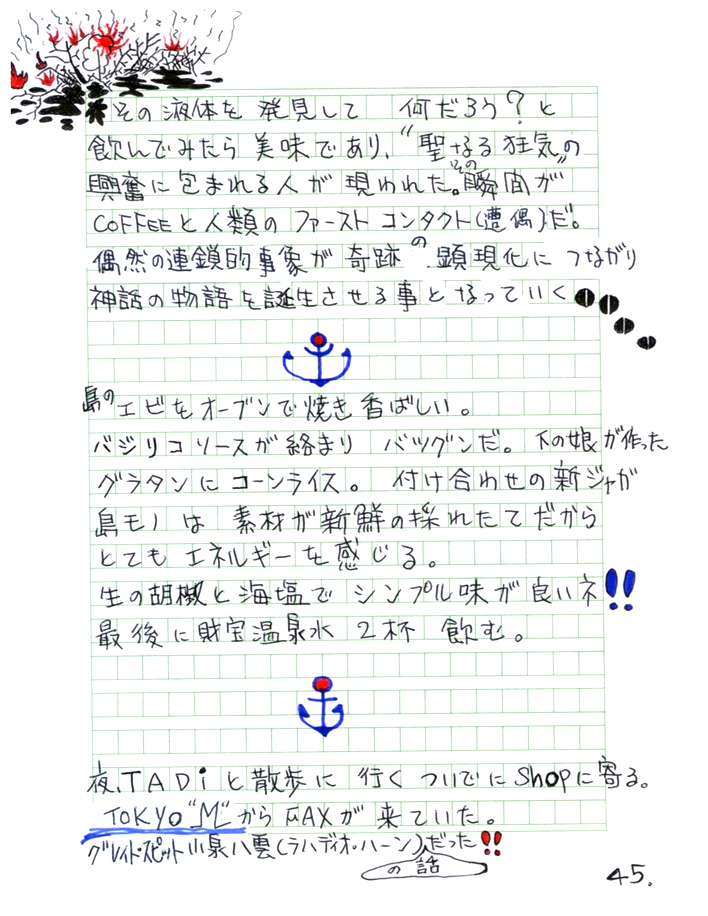 その液体を 発見して 何だろう？と
飲んでみたら 美味であり、“聖なる狂気”の
興奮に包まれる人が 現われた。その瞬間が
COFFEEと人類の ファーストコンタクト(遭偶)だ。
偶然の連鎖的事象が 奇跡の顕現化に つながり
神話の物語を誕生させる事となっていく
島のエビをオーブンで焼き香ばしい。
バジリコソースが絡まり バツグンだ。下の娘が作った
グラタンにコーンライス。付け合わせの新ジャガ
島モノは 素材が新鮮の採れたてだから
とてもエネルギーを感じる。
生の胡椒と海塩で シンプル味が良いネ!!
最後に財宝温泉水 2杯 飲む。
夜、TADiと散歩に 行くついでにShopに寄る。
TOKYO“M”からFAXが 来ていた。
グレイト・スピット小泉八雲(ラハディオ・ハーン)の話だった!!
45.